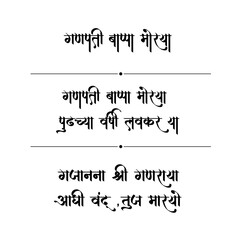 गणपती बाप्पा मोरया
गणपती बाप्पा मोरया
पुढच्या वर्षी लवकर या
गजानना श्री गणराया
आधी वंदू तुज मोरया